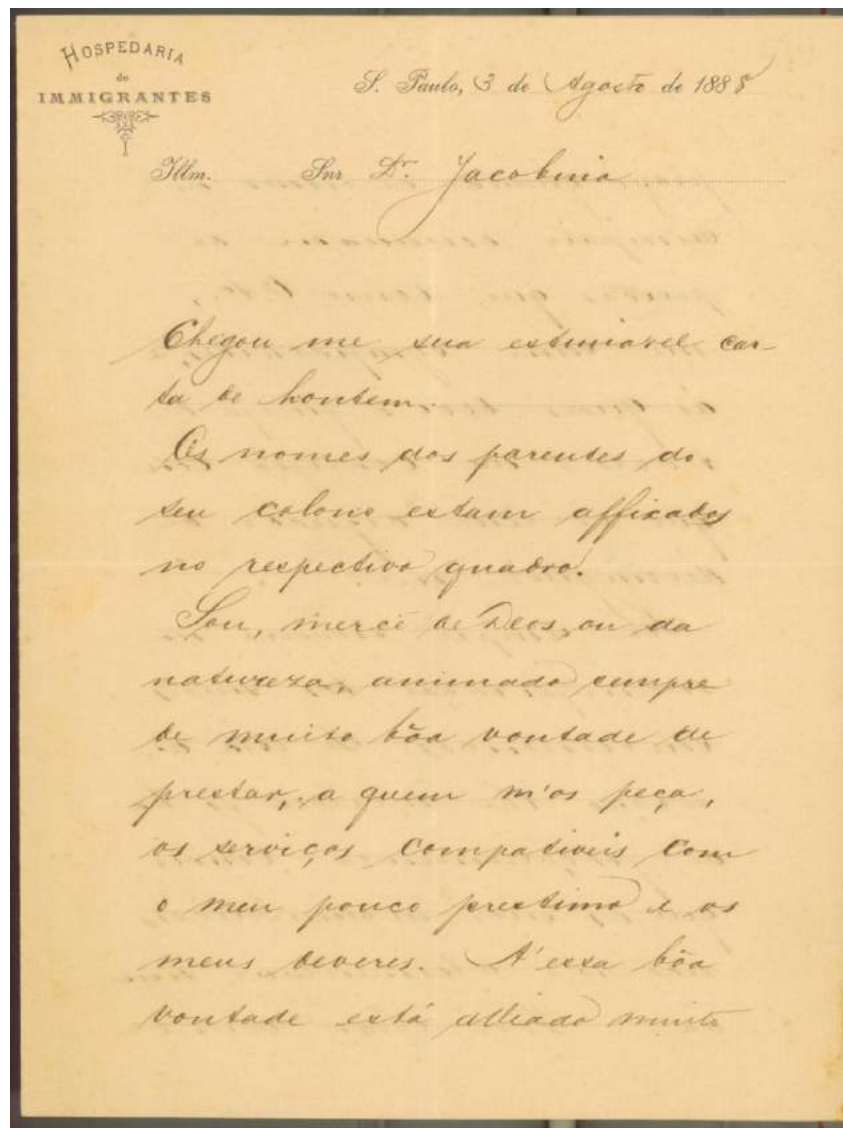 HOSPEDARIA
de
IMMIGRANTES
S. Paulo, 3 de Agosto de 1888
Illm. Snr Dr. Jacobina
Chegou me sua estimavel car-
ta de hontem.
Os nomes dos parentes do
seu colono estam affixados
no respectivo quadro.
Sou, mercê de Deos, ou da
natureza, animado sempre
de muito bôa vontade de
prestar, a quem m'os peça,
os serviços compativeis com
o meu pouco prestimo e os
meus deveres. A' essa bôa
vontade está alliado muito